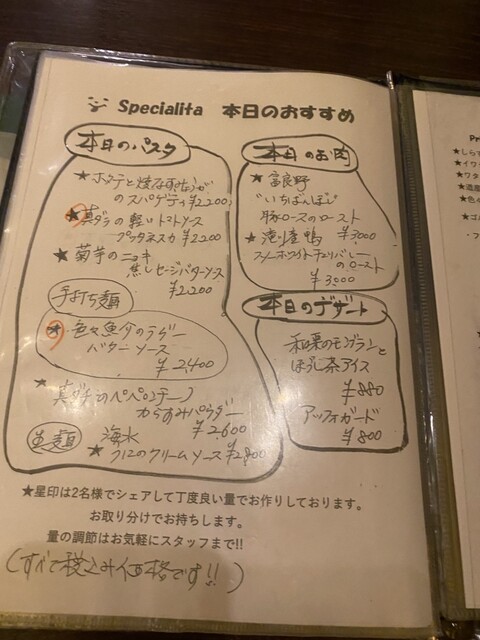 Specialita 本日のおすすめ
本日のパスタ
★ホタテと焼なす
のスパゲティ ¥2,200
真ダラの軽いトマトソース
プッタネスカ ¥2,200
★菊芋のニョキ
焦しセージバターソース
¥2,200
手打ち麺
★色々魚介のラグー
バターソース
¥2,400
★真ダチのペペロンチーノ
からすみパウダー
¥2,600
海水
★ウニのクリームソース ¥2,800
本日のお肉
★富良野
"いちばんぼし"
豚ロースのロースト
¥3,000
★滝川産鴨
スノーホワイトチェリバレー
のロースト
¥3,000
本日のデザート
和栗のモンブランと
ほうじ茶アイス
¥880
アッフォガード
¥800
★星印は2名様でシェアして丁度良い量でお作りしております。
お取り分けでお持ちします。
量の調節はお気軽にスタッフまで!!
(すべて税込み価格です!!)
Pr
★しら
★イワ
★ワタ
★道産
★色々
★ゴル